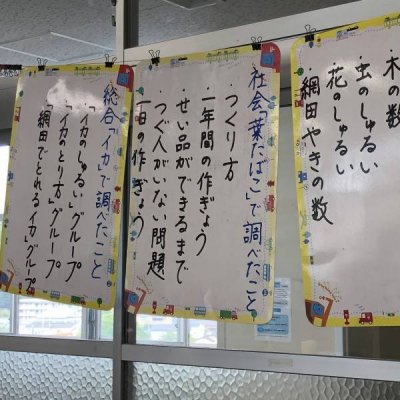 木の数
虫のしゅるい
花のしゅるい
網田やきの数
社会「葉たばこ」で調べたこと
・つくり方
・一年間の作ぎょう
・せい品ができるまで
・つぐ人がいない問題
・一日の作ぎょう
総合「イカ」で調べたこと
・「イカのしゅるい」グループ
・「イカのとり方」グループ
・「網田でとれるイカ」グループ